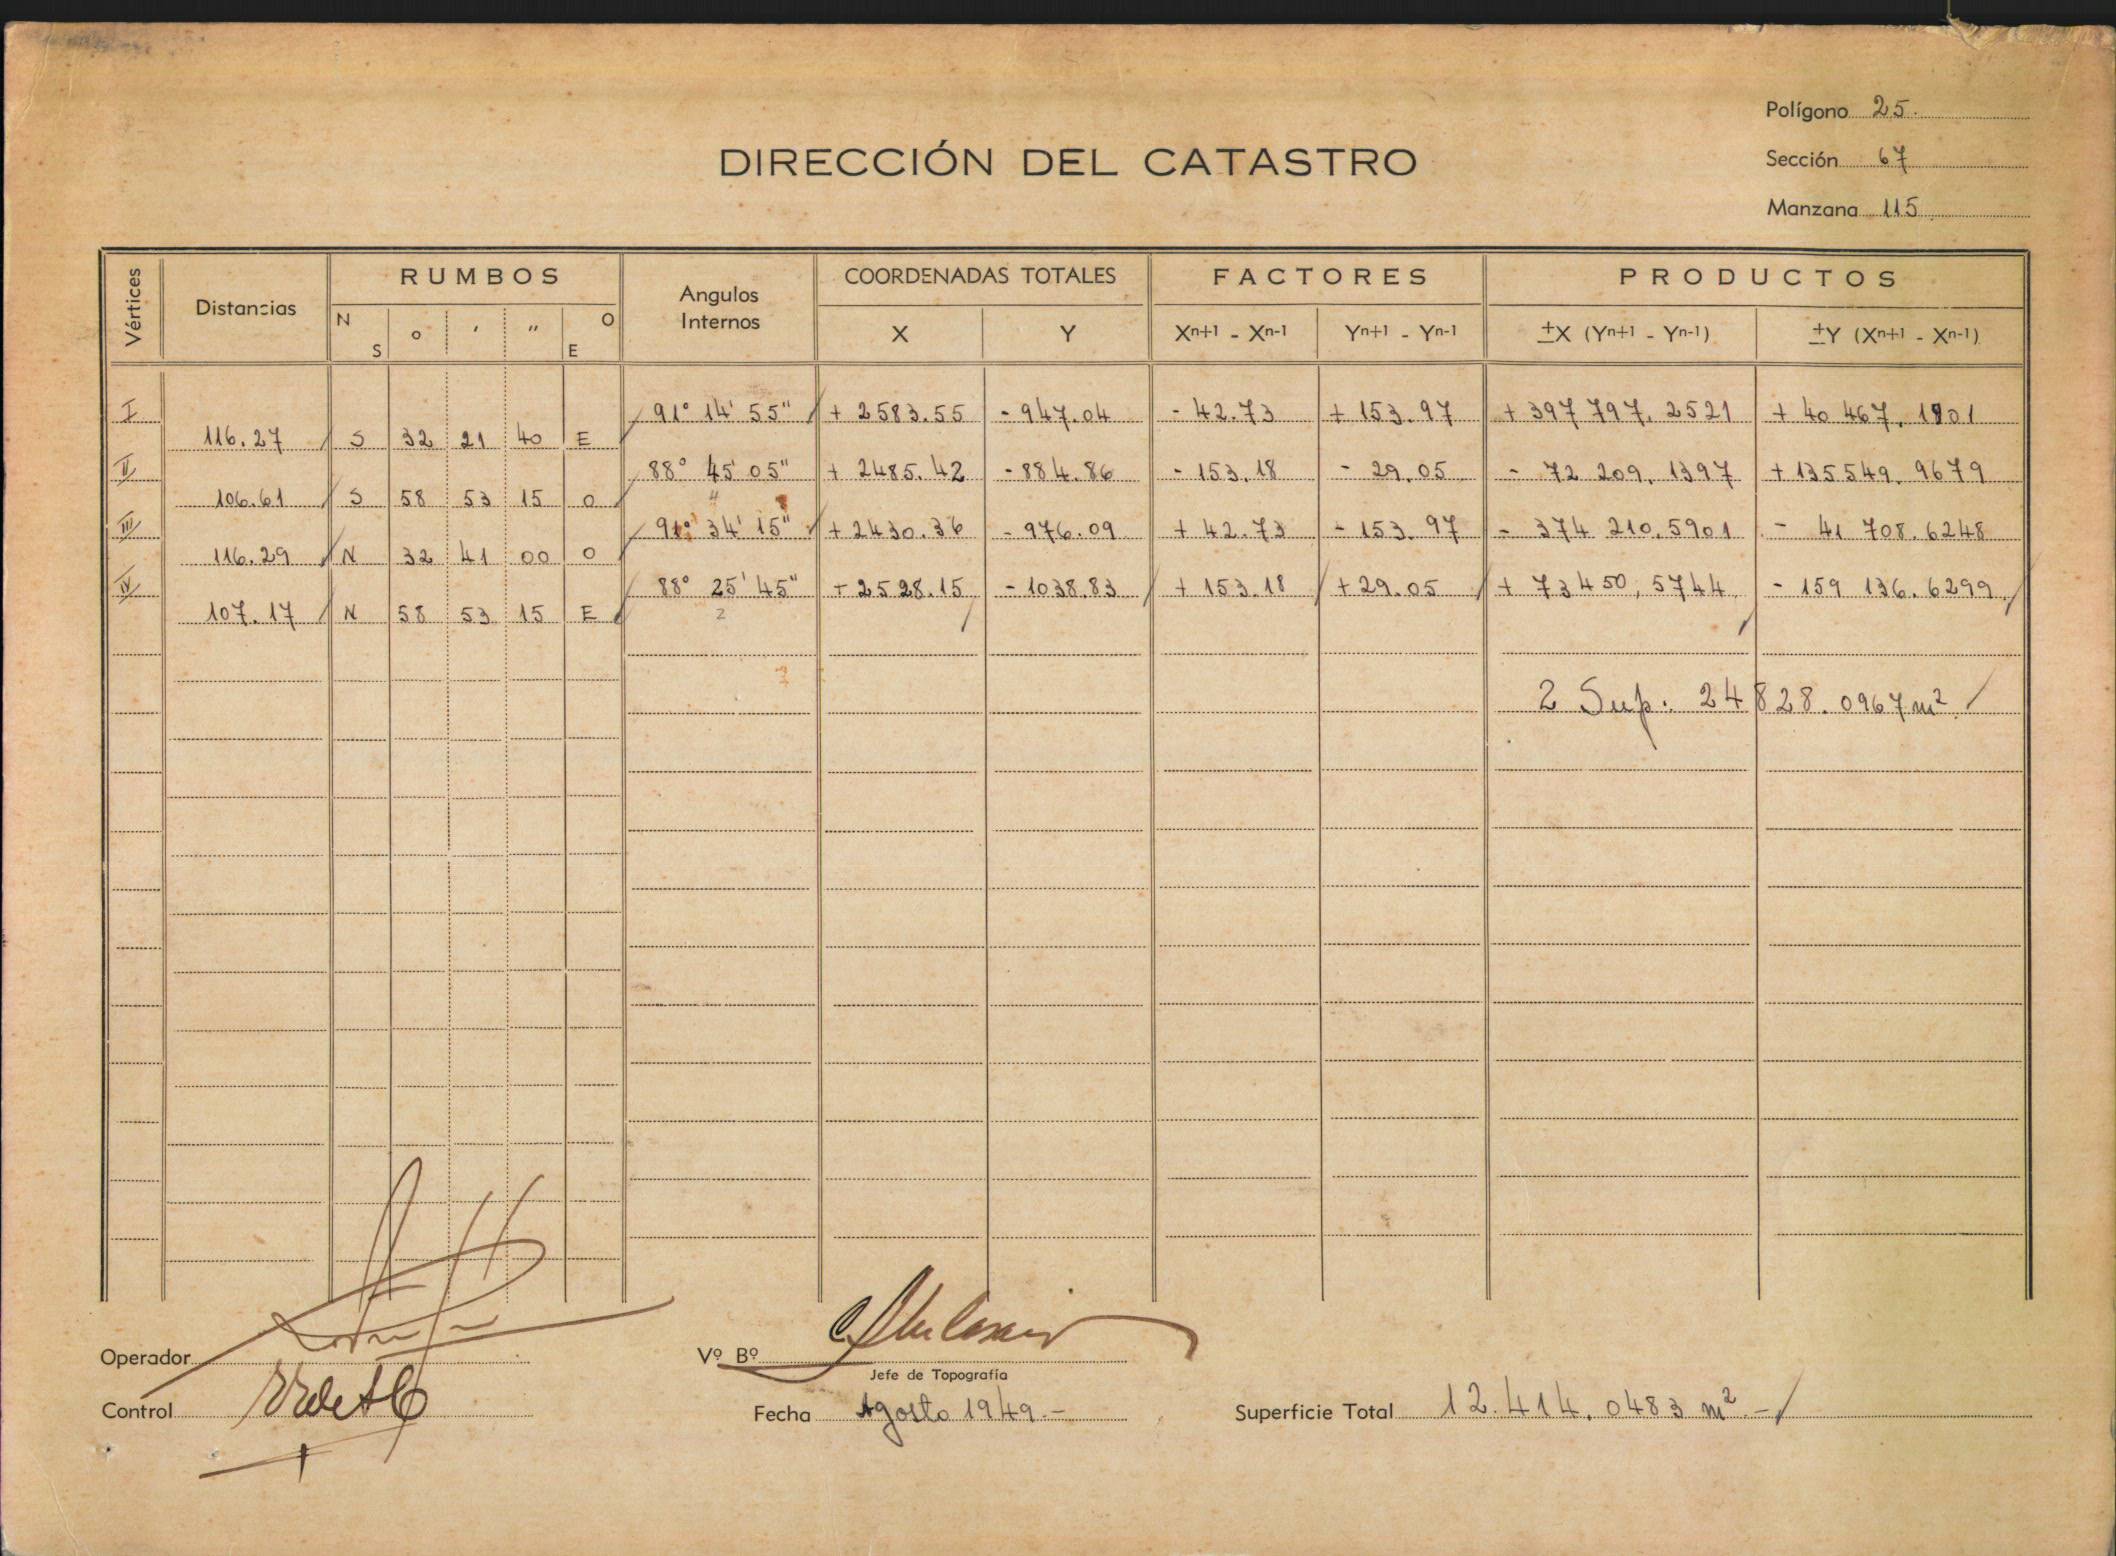 Polígono 25.
DIRECCIÓN DEL CATASTRO
Sección 67
Manzana 115
Vértices Distancias RUMBOS Angulos Internos COORDENADAS TOTALES FACTORES PRODUCTOS
N S ° ' " O E X Y Xn+1 - Xn-1 Yn+1 - Yn-1 ±X (Yn+1 - Yn-1) ±Y (Xn+1 - Xn-1)
I 91° 14' 55" + 2583.55 - 947.04 - 42.73 + 153.97 + 397 797, 2521 + 40 467, 1901
116.27 S 32 21 40 E
II 88° 45' 05" + 2485.42 - 884.86 - 153.18 - 29.05 - 72 209, 1397 + 135 549. 9679
106.61 S 58 53 15 O
III 91° 34' 15" + 2430.36 - 976.09 + 42.73 - 153.97 - 374 210.5901 - 41 708.6248
116.29 N 32 41 00 O
IV 88° 25' 45" + 2528.15 - 1038.83 + 153.18 + 29.05 + 73450, 5744 - 159 136.6299
107.17 N 58 53 15 E
2
2 Sup. 24828.0967 m²
Operador
Vº Bº
Jefe de Topografía
Control
Fecha Agosto 1949.-
Superficie Total 12.414.0483 m².-